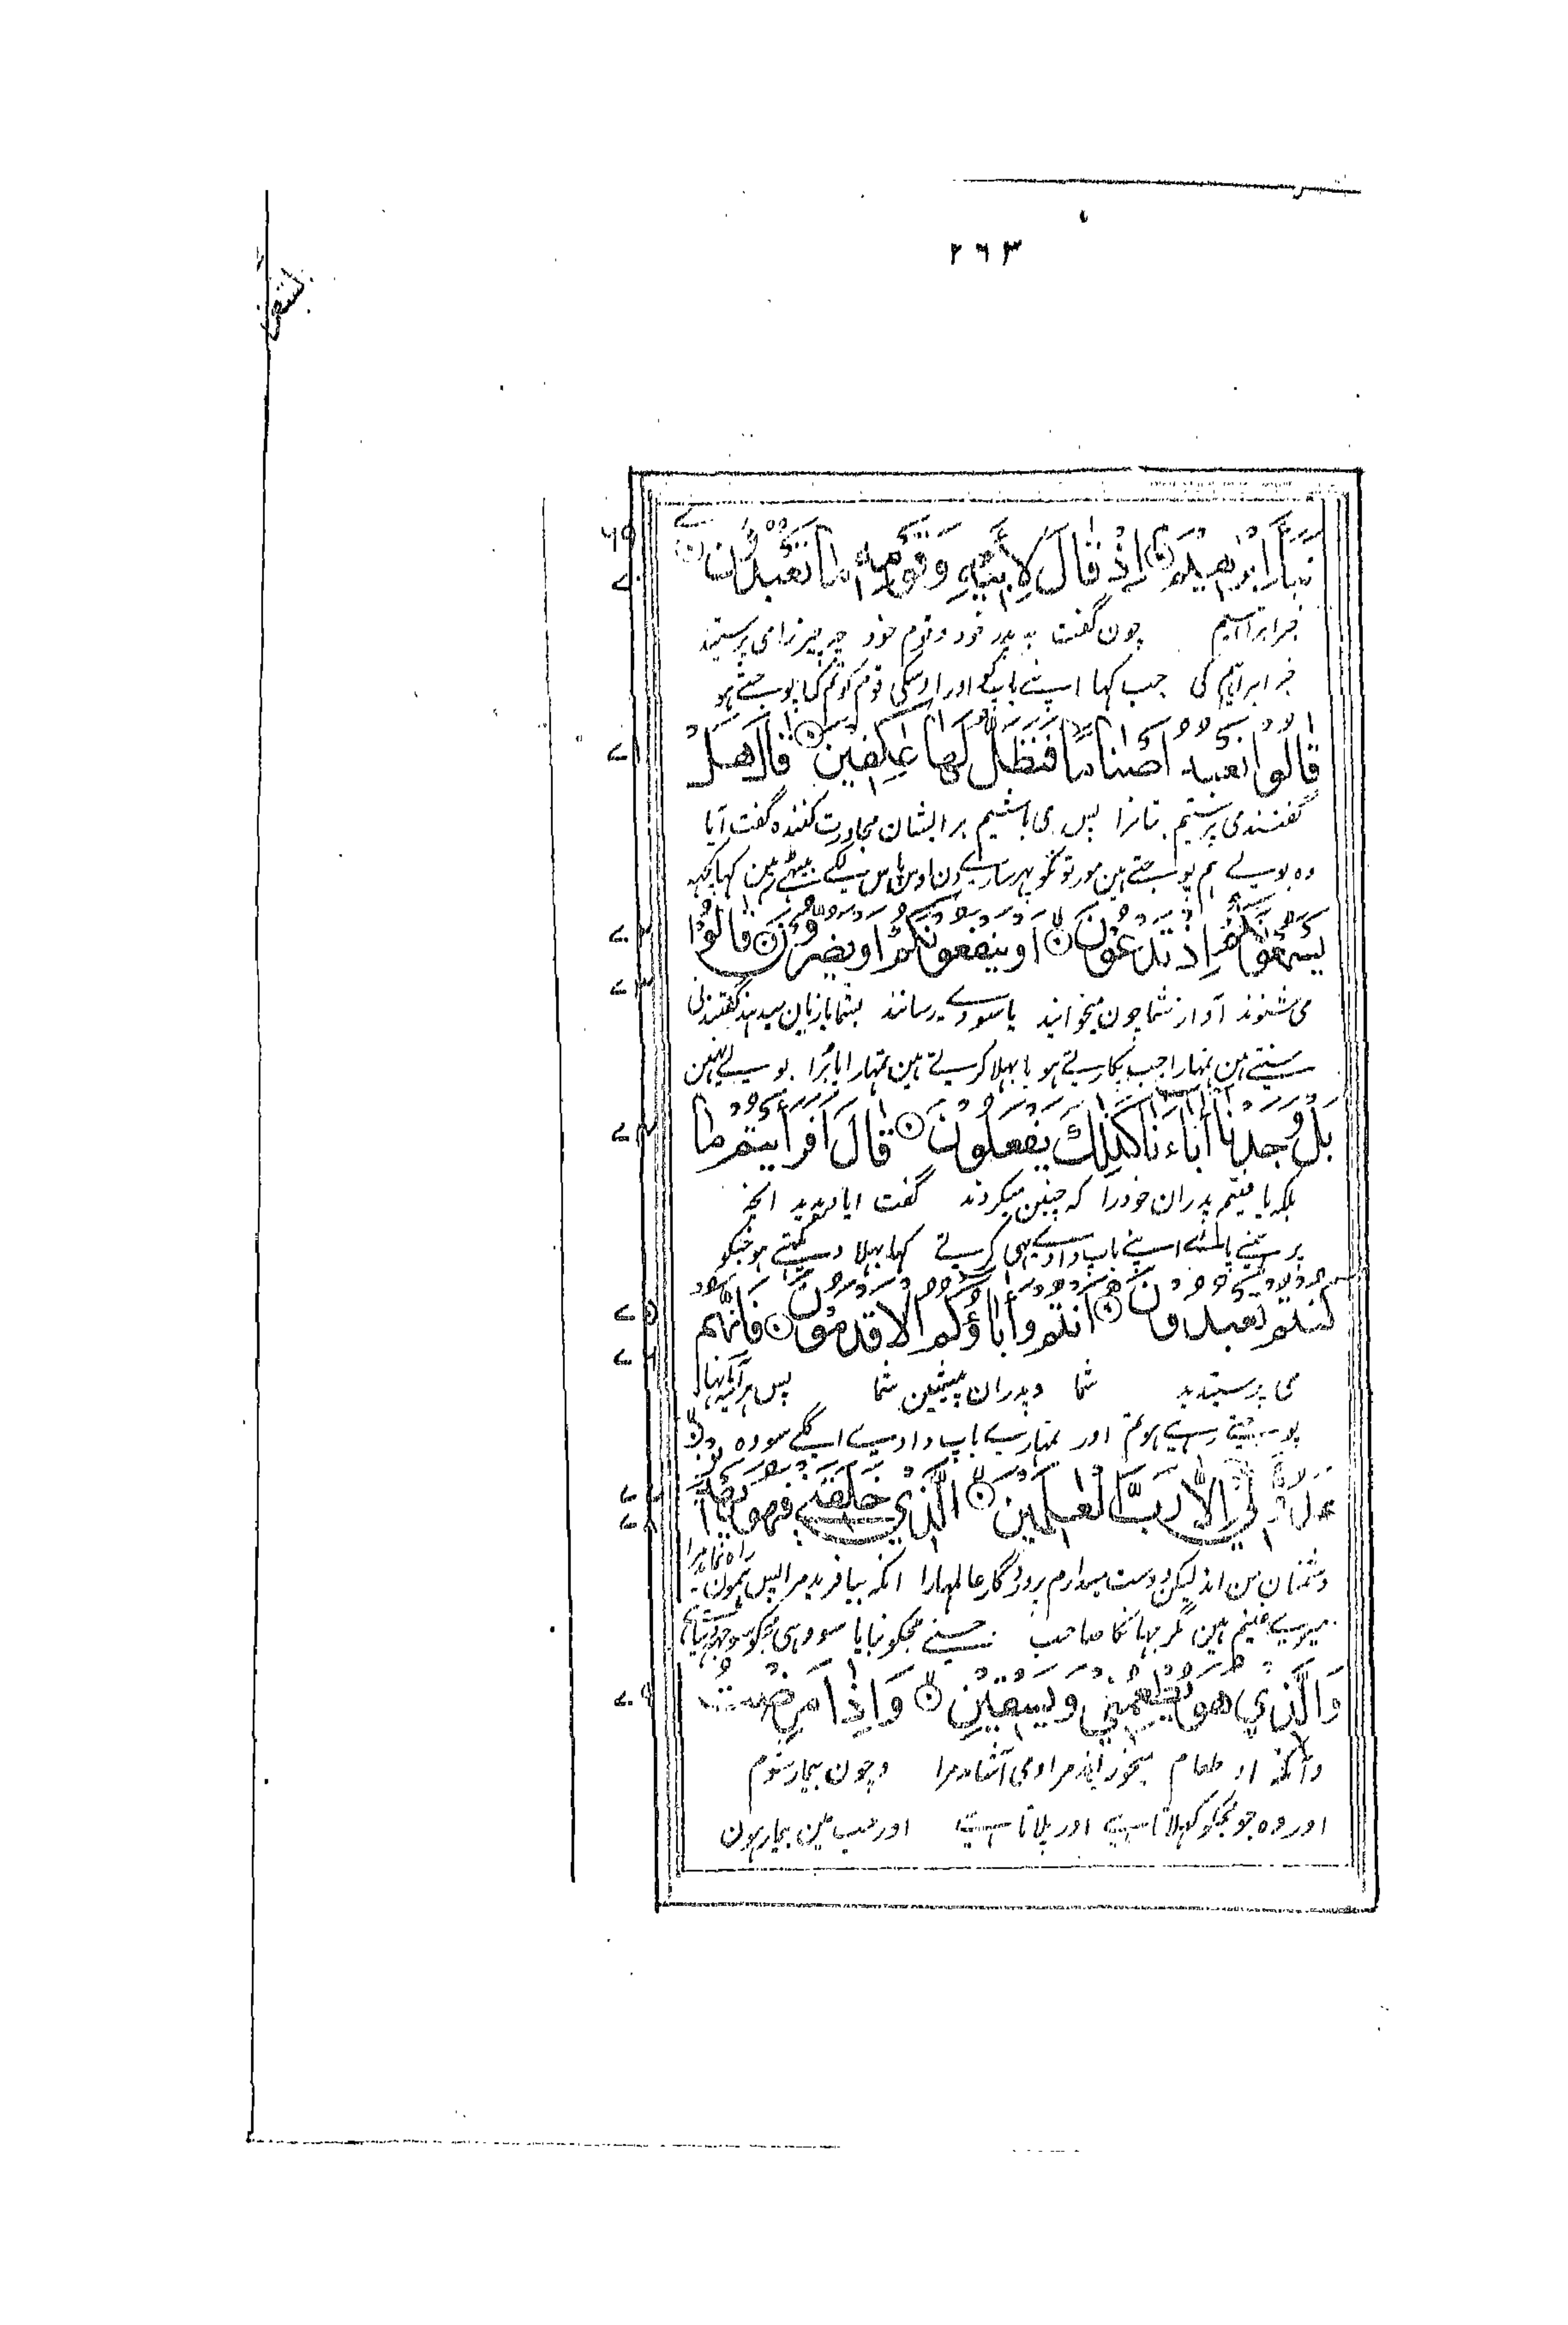 ٢٦٣
نَبَأَ اِبْرٰهِيْمَ ۞ اِذْ قَالَ لِاَبِيْهِ وَقَوْمِهٖ مَا تَعْبُدُوْنَ ۞
٦٩
٧٠
خبر ابراہیم چون گفت بہ پدر خود و قوم خود چہ چیز را می پرستید
خبر ابراہیم کی جب کہا اپنے باپ کو اور اوسکی قوم کو تم کیا پوجتے ہو
قَالُوْا نَعْبُدُ اَصْنَامًا فَنَظَلُّ لَهَا عٰكِفِيْنَ ۞ قَالَ هَلْ
٧١
گفتند می پرستیم بتانرا پس می باشیم بر ایشان مجاورت کننده گفت آیا
وہ بولے ہم پوجتے ہین مورتونکو پہر سارے دن اوس پاس لگے بیٹھے ہین کہا کچہہ
يَسْمَعُوْنَكُمْ اِذْ تَدْعُوْنَ ۞ اَوْ يَنْفَعُوْنَكُمْ اَوْ يَضُرُّوْنَ ۞ قَالُوْا
٧٢
٧٣
می شنوند آواز شما چون میخوانید یا سودے میرسانند بشما یا زیان میدہند گفتند نی
سنتے ہین تمہارا جب پکارتے ہو یا بہلا کرتے ہین تمہارا یا برا بولے نہین
بَلْ وَجَدْنَا اٰبَاءَنَا كَذٰلِكَ يَفْعَلُوْنَ ۞ قَالَ اَفَرَاَيْتُمْ مَا
٧٤
بلکہ یافتیم پدران خودرا کہ چنین میکردند گفت ایا دیدید انچہ
پر ہمنے پائے اپنے باپ دادے یہی کرتے کہا بہلا دیکہتے ہو جنکو
كُنْتُمْ تَعْبُدُوْنَ ۞ اَنْتُمْ وَاٰبَاؤُكُمُ الْاَقْدَمُوْنَ ۞ فَاِنَّهُمْ
٧٥
٧٦
می پرستیدید شما و پدران پیشین شما پس ہرآئینہ آنہا
پوجتے رہے ہو تم اور تمہارے باپ دادے اگلے سو وہ
عَدُوٌّ لِيْ اِلَّا رَبَّ الْعٰلَمِيْنَ ۞ الَّذِيْ خَلَقَنِيْ فَهُوَ يَهْدِيْنِ
٧٧
٧٨
دشمنان من اند لیکن دوست میدارم پروردگار عالمہارا انکہ بیافرید مرا پس ہمون راہ نماید مرا
میرے غنیم ہین مگر جہانکا صاحب جسنے مجکو بنایا سو وہی مجکو سوجہہ دیتا ہے
وَالَّذِيْ هُوَ يُطْعِمُنِيْ وَيَسْقِيْنِ ۞ وَاِذَا مَرِضْتُ
٧٩
وآنکہ او طعام میخوراند مرا و می آشاماند مرا و چون بیمار شوم
اور وہ جو مجکو کہلاتا ہے اور پلاتا ہے اور جب مین بیمار ہون